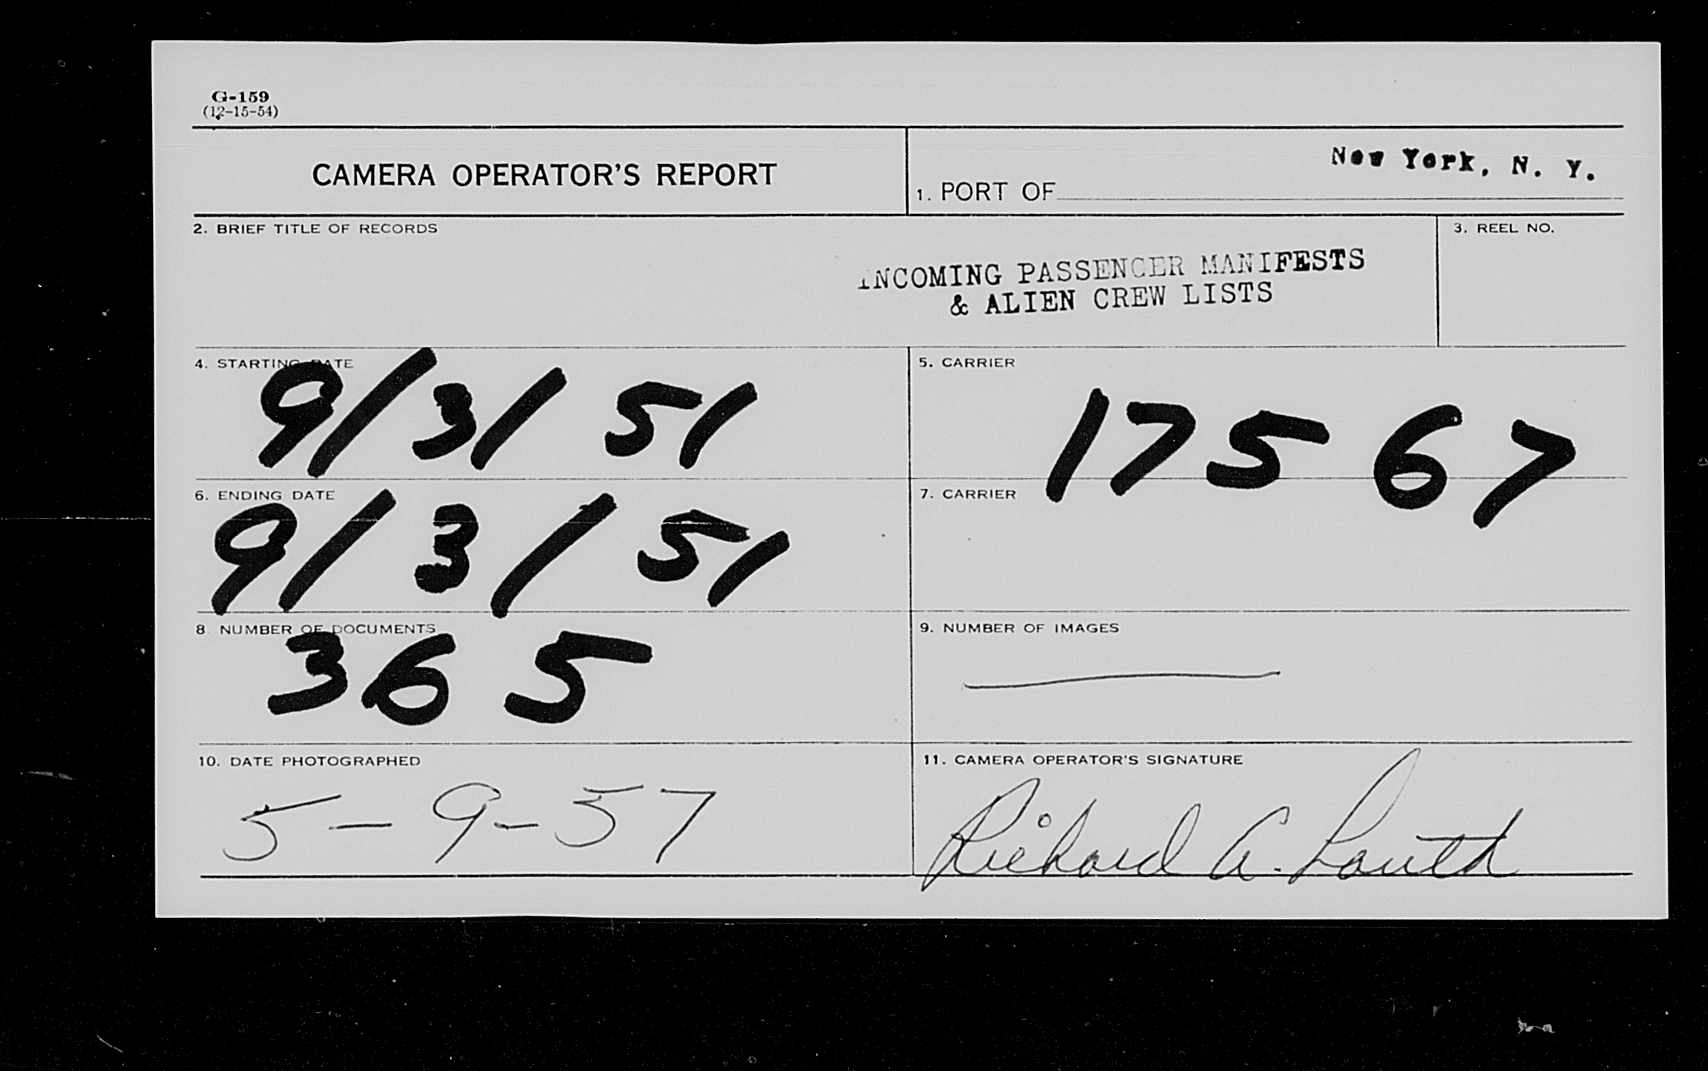 G-159
(12-15-54)
CAMERA OPERATOR'S REPORT
1. PORT OF New York, N. Y.
2. BRIEF TITLE OF RECORDS
INCOMING PASSENGER MANIFESTS
& ALIEN CREW LISTS
3. REEL NO.
4. STARTING DATE
9/3/51
5. CARRIER
17567
6. ENDING DATE
9/3/51
7. CARRIER
8. NUMBER OF DOCUMENTS
365
9. NUMBER OF IMAGES
10. DATE PHOTOGRAPHED
5-9-57
11. CAMERA OPERATOR'S SIGNATURE
Richard A.